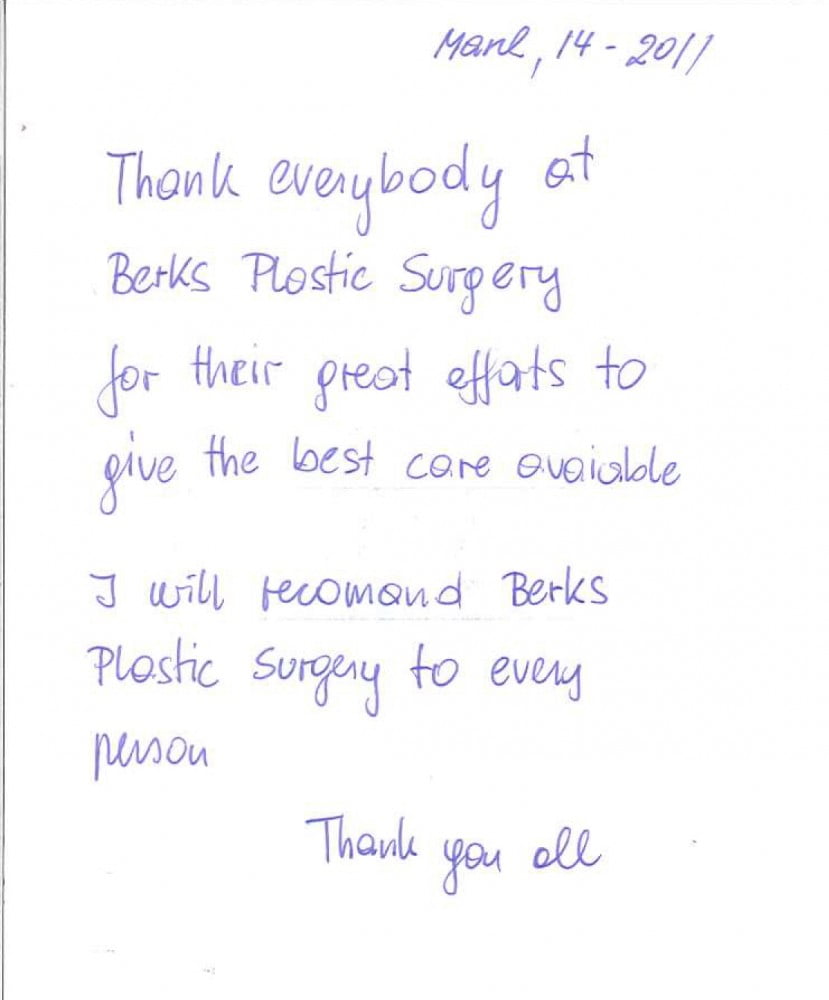 March, 14 - 2011
Thank everybody at
Berks Plastic Surgery
for their great efforts to
give the best care avaiable
I will recomand Berks
Plastic Surgery to every
person
Thank you all